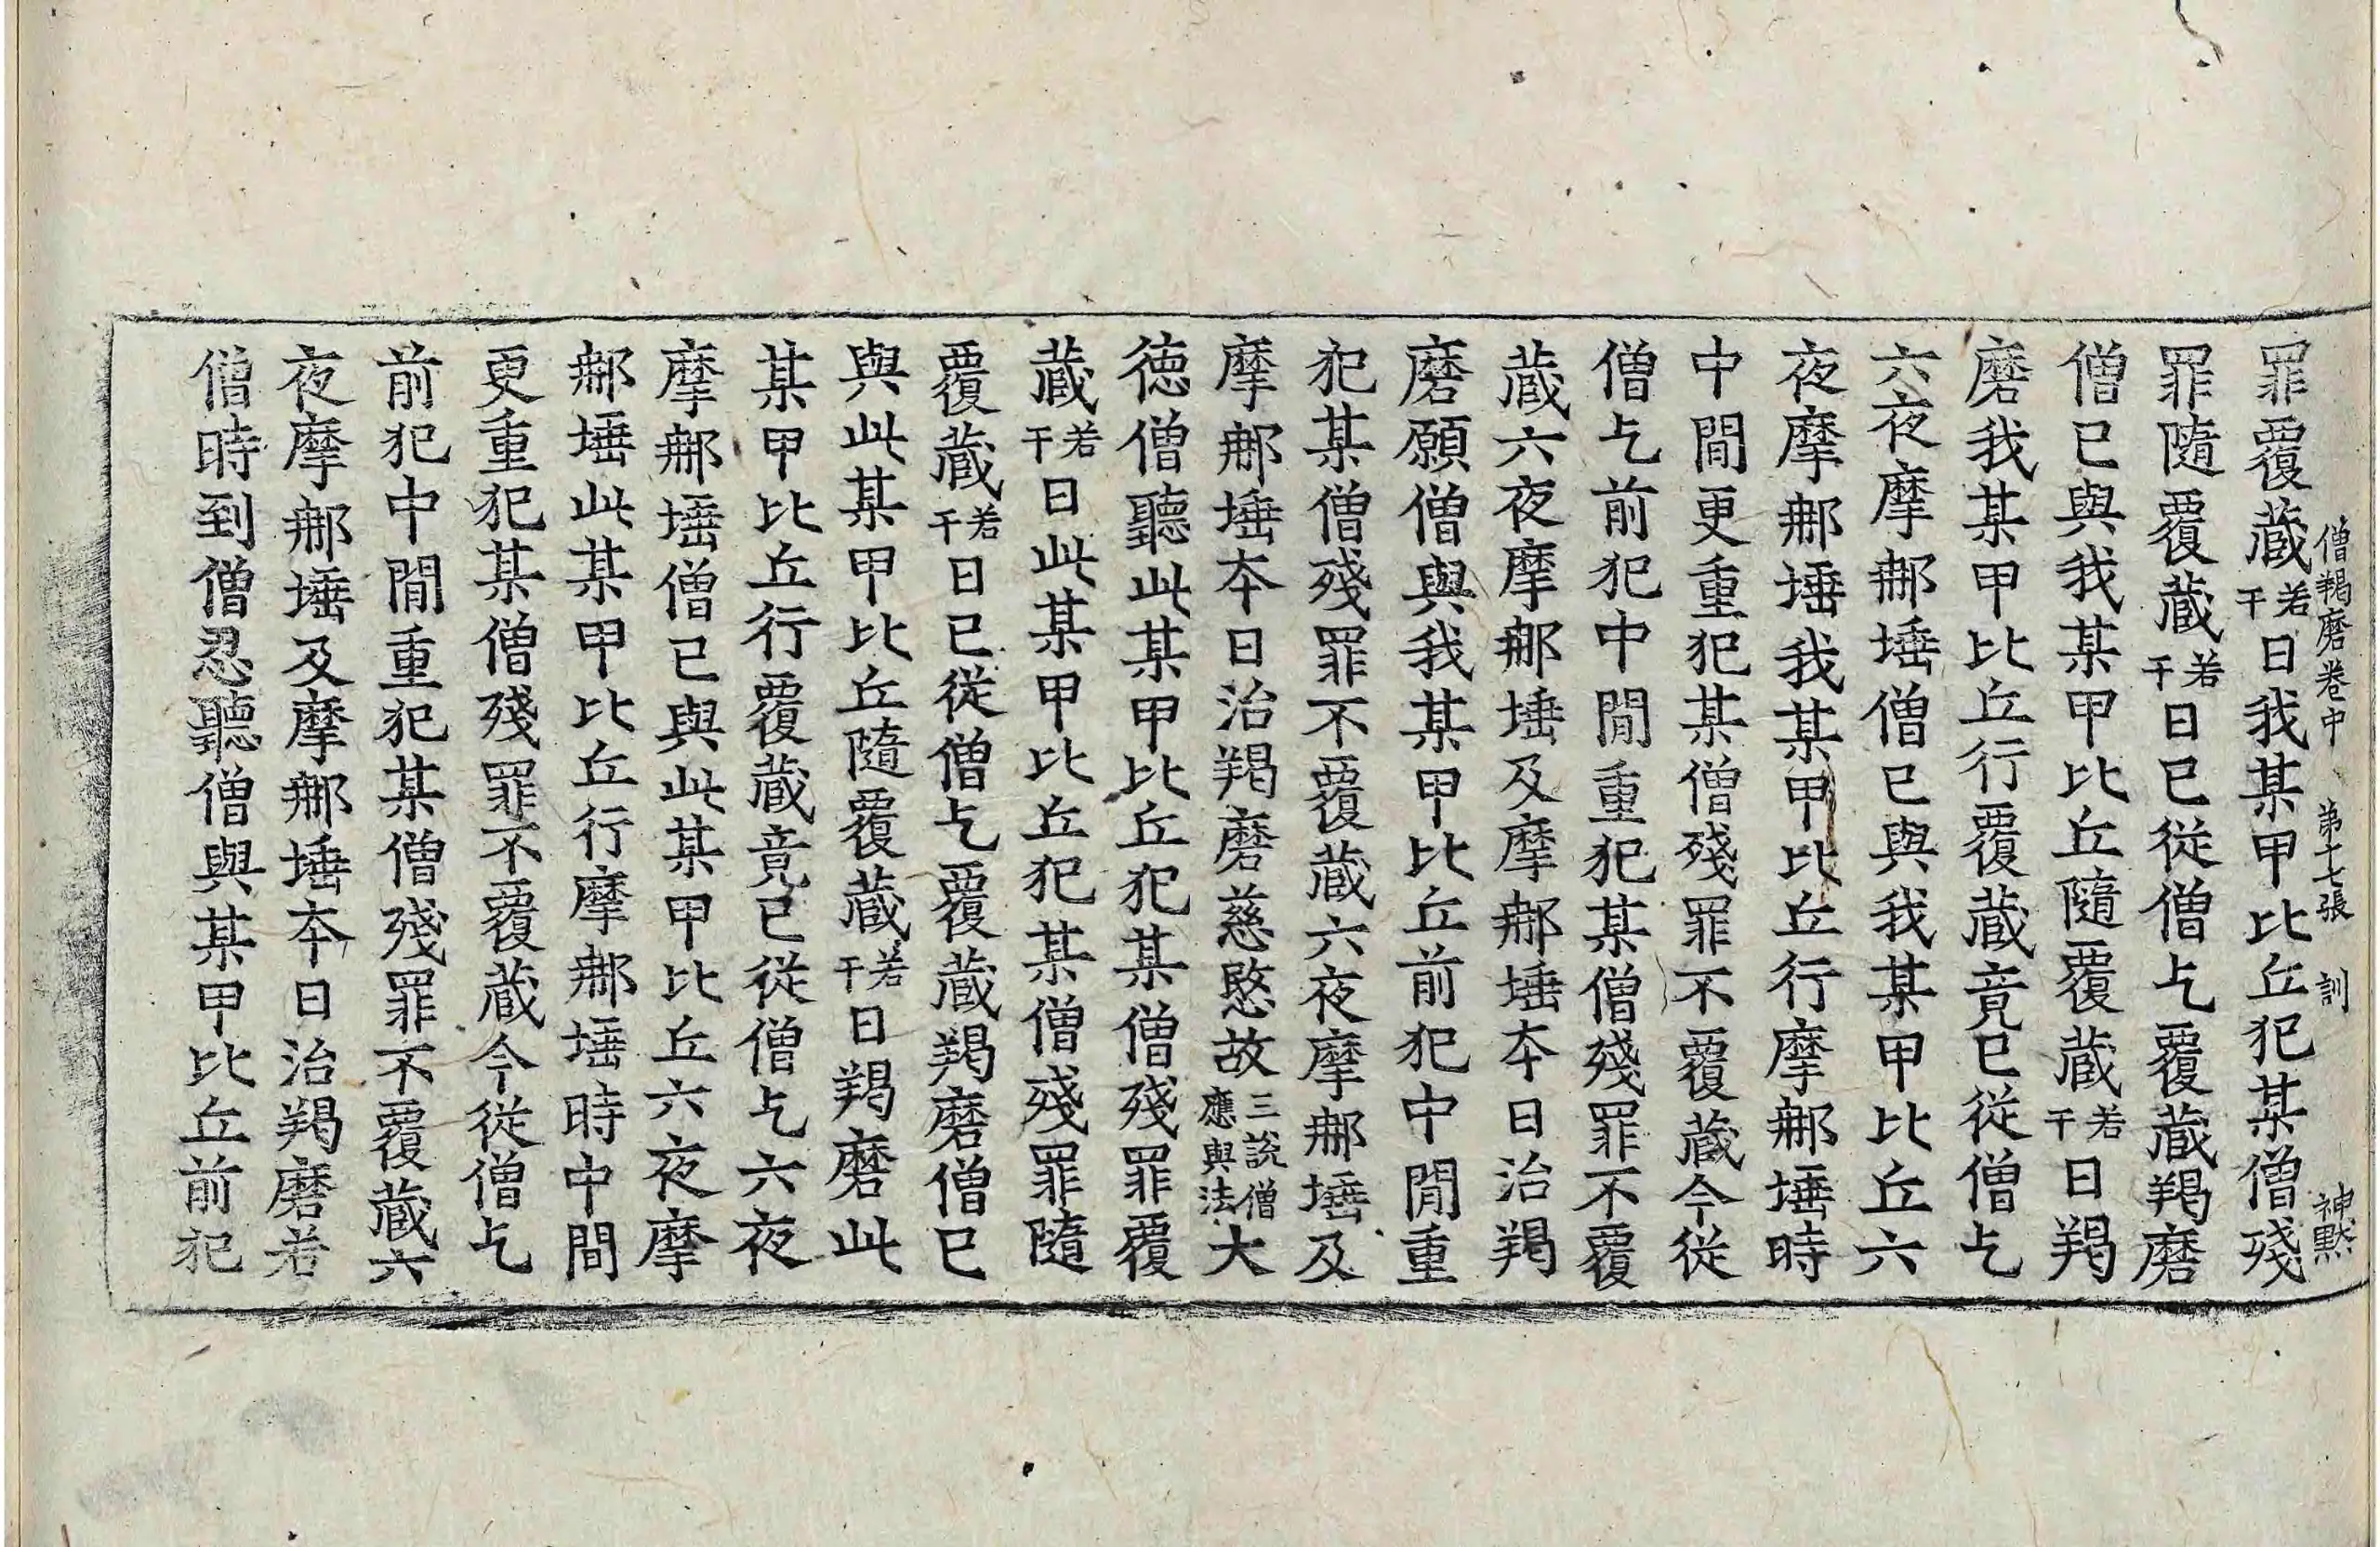 僧羯磨卷中 第十七張 訓 神黙
罪覆蔵若干日我某甲比丘犯某僧殘
罪隨覆蔵若干日已從僧乞覆蔵羯磨
僧已與我某甲比丘隨覆蔵若干日羯
磨我某甲比丘行覆蔵竟已從僧乞
六夜摩㖠埵僧已與我某甲比丘六
夜摩㖠埵我某甲比丘行摩㖠埵時
中間更重犯某僧殘罪不覆蔵今從
僧乞前犯中間重犯某僧殘罪不覆
蔵六夜摩㖠埵及摩㖠埵夲日治羯
磨願僧與我某甲比丘前犯中間重
犯某僧殘罪不覆蔵六夜摩㖠埵及
摩㖠埵夲日治羯磨慈愍故三說僧應與法大
徳僧聽此某甲比丘犯某僧殘罪覆
蔵若干日此某甲比丘犯某僧殘罪隨
覆蔵若干日已從僧乞覆蔵羯磨僧已
與此某甲比丘隨覆蔵若干日羯磨此
某甲比丘行覆蔵竟已從僧乞六夜
摩㖠埵僧已與此某甲比丘六夜摩
㖠埵此某甲比丘行摩㖠埵時中間
更重犯某僧殘罪不覆蔵今從僧乞
前犯中間重犯某僧殘罪不覆蔵六
夜摩㖠埵及摩㖠埵夲日治羯磨若
僧時到僧忍聽僧與某甲比丘前犯